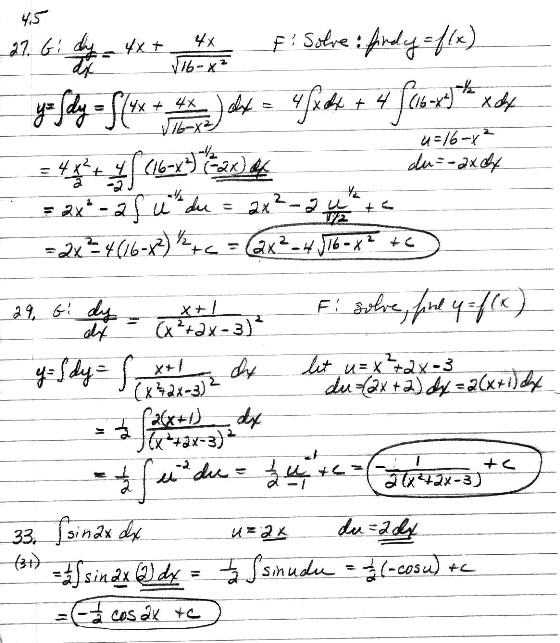 4.5
27. G: dy/dx = 4x + 4x/√(16-x²) F: Solve: find y = f(x)
y = ∫dy = ∫(4x + 4x/√(16-x²)) dx = 4∫x dx + 4∫(16-x²)^(-1/2) x dx
u = 16-x²
du = -2x dx
= 4x²/2 + 4/-2 ∫(16-x²)^(-1/2) (-2x) dx
= 2x² - 2∫u^(-1/2) du = 2x² - 2 u^(1/2)/(1/2) + c
= 2x² - 4(16-x²)^(1/2) + c = 2x² - 4√(16-x²) + c
29. G: dy/dx = (x+1)/(x²+2x-3)² F: solve, find y = f(x)
y = ∫dy = ∫ (x+1)/(x²+2x-3)² dx let u = x²+2x-3
du = (2x+2) dx = 2(x+1) dx
= 1/2 ∫ 2(x+1)/(x²+2x-3)² dx
= 1/2 ∫ u^(-2) du = 1/2 u^(-1)/-1 + c = -1/(2(x²+2x-3)) + c
33. ∫sin2x dx u = 2x du = 2dx
(31)
= 1/2 ∫sin2x (2) dx = 1/2 ∫sinu du = 1/2 (-cosu) + c
= -1/2 cos2x + c